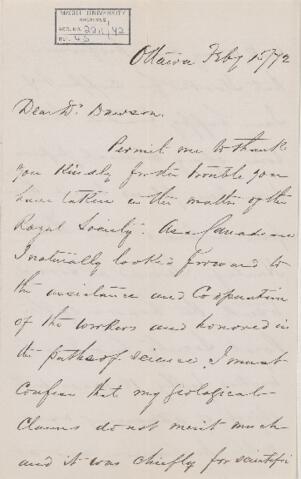 McGILL UNIVERSITY
ARCHIVES
ACC. NO. 2211/42
REF. 43
Ottawa Feby 15/72
Dear Dr Dawson.
Permit me to thank
you kindly for the trouble you
have taken in the matter of the
Royal Society. As a Canadian
I naturally looked forward to
the assistance and Cooperation
of the workers and honored in
the paths of science. I must
confess that my geological
Claims do not merit much
and it was chiefly for scientifi